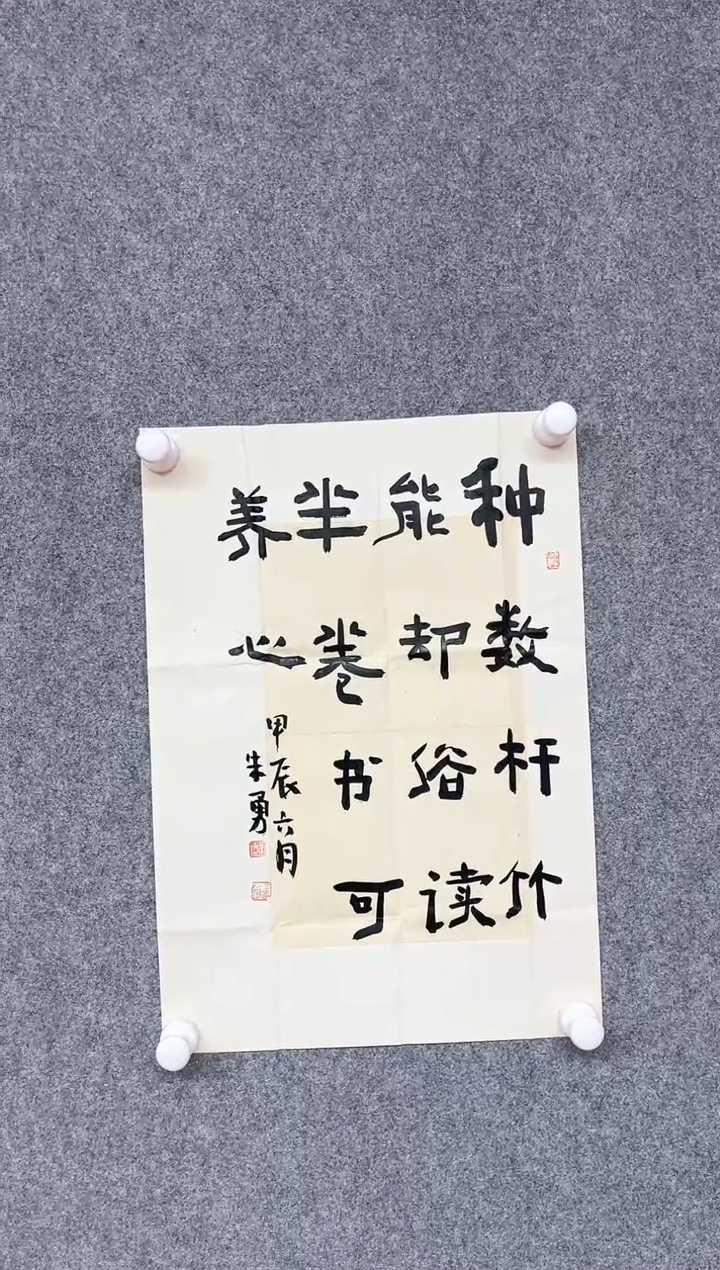 种数杆竹
能却俗读
半卷书可
养心
甲辰六月
朱勇